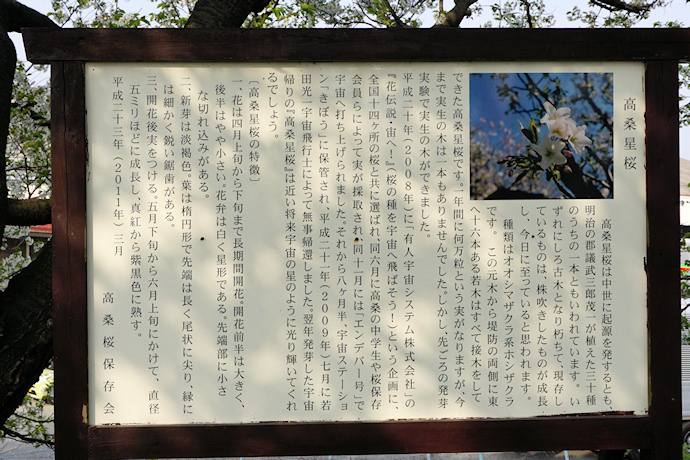 高桑星桜
高桑星桜は中世に起源を発するとも、
明治の郡議武三郎茂一が植えた三十種
のうちの一本ともいわれています。い
ずれにしろ古木となり朽ちて、現存し
ているものは、株吹きしたものが成長
し、今日に至つていると思われます。
種類はオオシマザクラ系ホシザクラ
です。この元木から堤防の両側に東
へ十六本ある若木はすべて接木をして
できた高桑星桜です。一年間に何万粒という実がなりますが、今
まで実生の木は一本もありませんでした。しかし、先ごろの発芽
実験で実生の木ができました。
平成二十年(2008年)に「有人宇宙システム株式会社」の
『花伝説・宙へ!』(桜の種を宇宙へ飛ばそう!)という企画に、
全国十四ヶ所の桜と共に選ばれ、同六月に高桑の中学生や桜保存
会員らによつて実が採取され、同十一月には「エンデバー号」で
宇宙へ打ち上げられました。それから八ヶ月半、宇宙ステーショ
ン「きぼう」に保管され、平成二十一年(2009年)七月に若
田光一宇宙飛行士によって無事帰還しました。翌年発芽した宇宙
帰りの『高桑星桜』は近い将来宇宙の星のように光り輝いてくれ
るでしょう。
〔高桑星桜の特徴〕
一、花は四月上旬から下旬まで長期間開花。開花前半は大きく、
後半はやや小さい。花弁は白く星形である。先端部に小さ
な切れ込みがある。
二、新芽は淡褐色。葉は楕円形で先端は長く尾状に尖り、縁に
は細かく鋭い鋸歯がある。
三、開花後実をつける。五月下旬から六月上旬にかけて、直径
五ミリほどに成長し、真紅から紫黒色に熟す。
平成二十三年(2011年)三月
高桑桜保存会